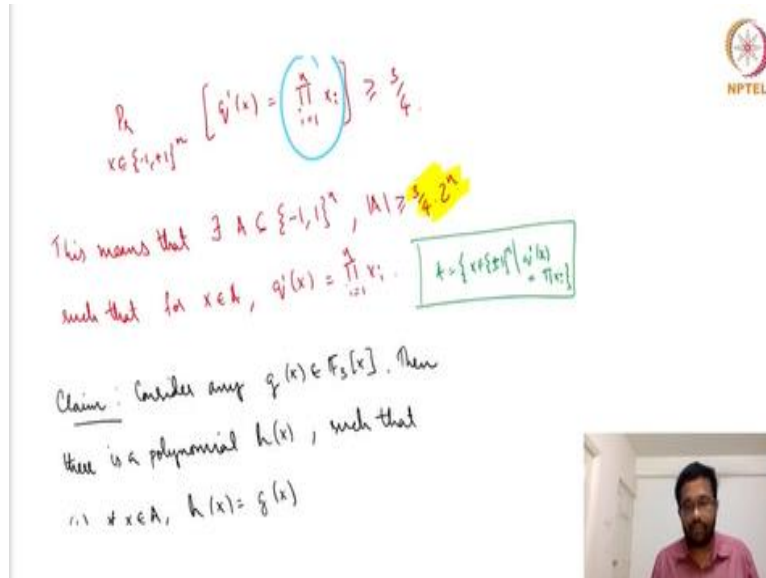 NPTEL
Pr [ q'(x) = ∏ xᵢ ] ≥ 3/4.
x∈{-1,+1}ⁿ i=1 n
This means that ∃ A ⊆ {-1,1}ⁿ, |A| ≥ 3/4 · 2ⁿ
such that for x∈A, q'(x) = ∏ xᵢ. n i=1
A = {x∈{±1}ⁿ | q'(x)
= ∏xᵢ}
Claim: Consider any g(x) ∈ F₃[x]. Then
there is a polynomial h(x), such that
(i) ∀ x∈A, h(x) = g(x)